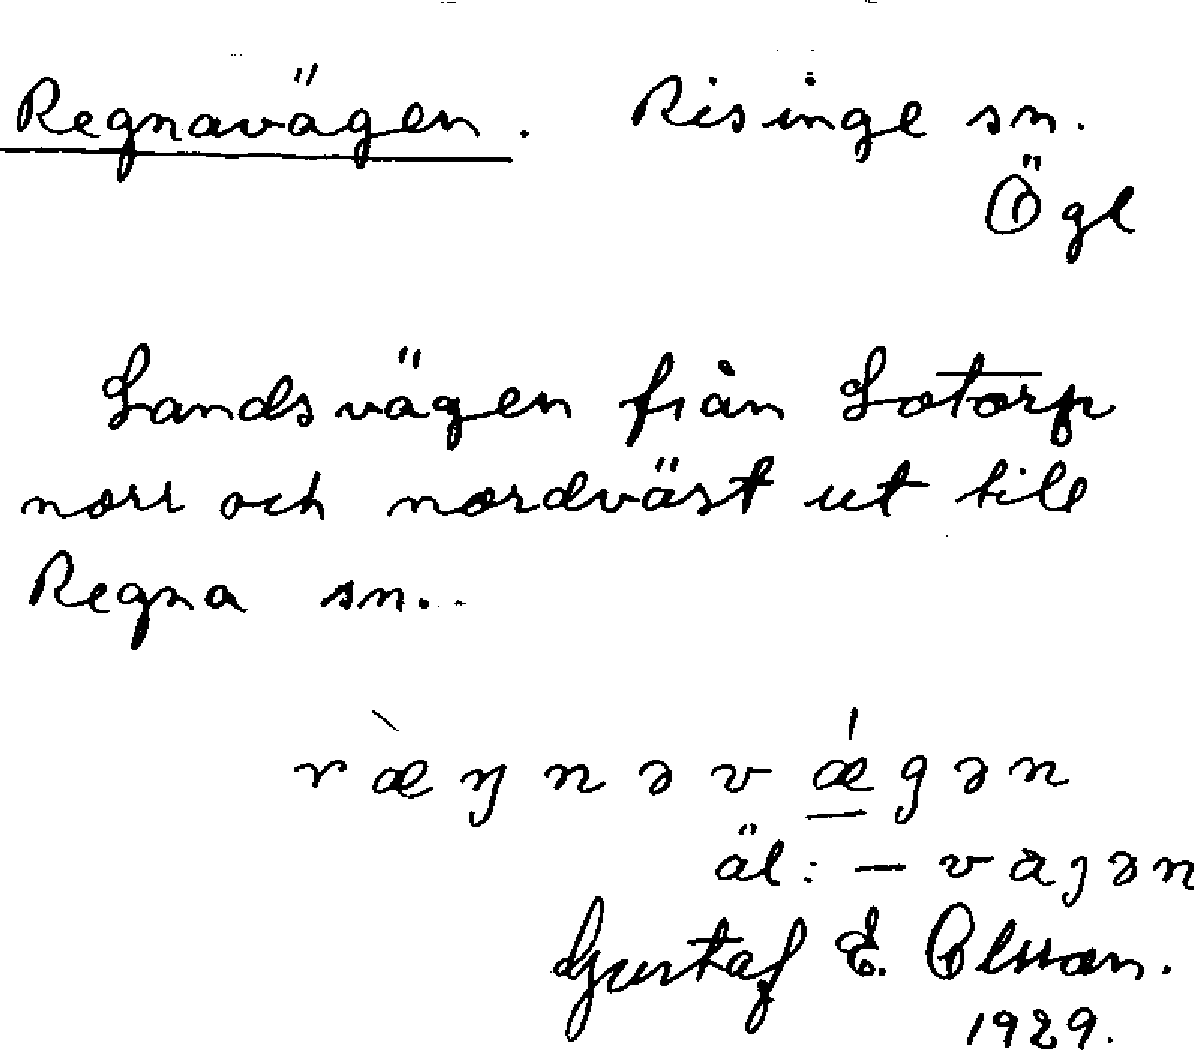 Regnavägen. Risinge sn.
Ögl
Landsvägen från Lotorp
norr och nordväst ut till
Regna sn.
ræ̀ŋnəvǽgən
äl: – vajən
Gustaf E. Olsson.
1929.